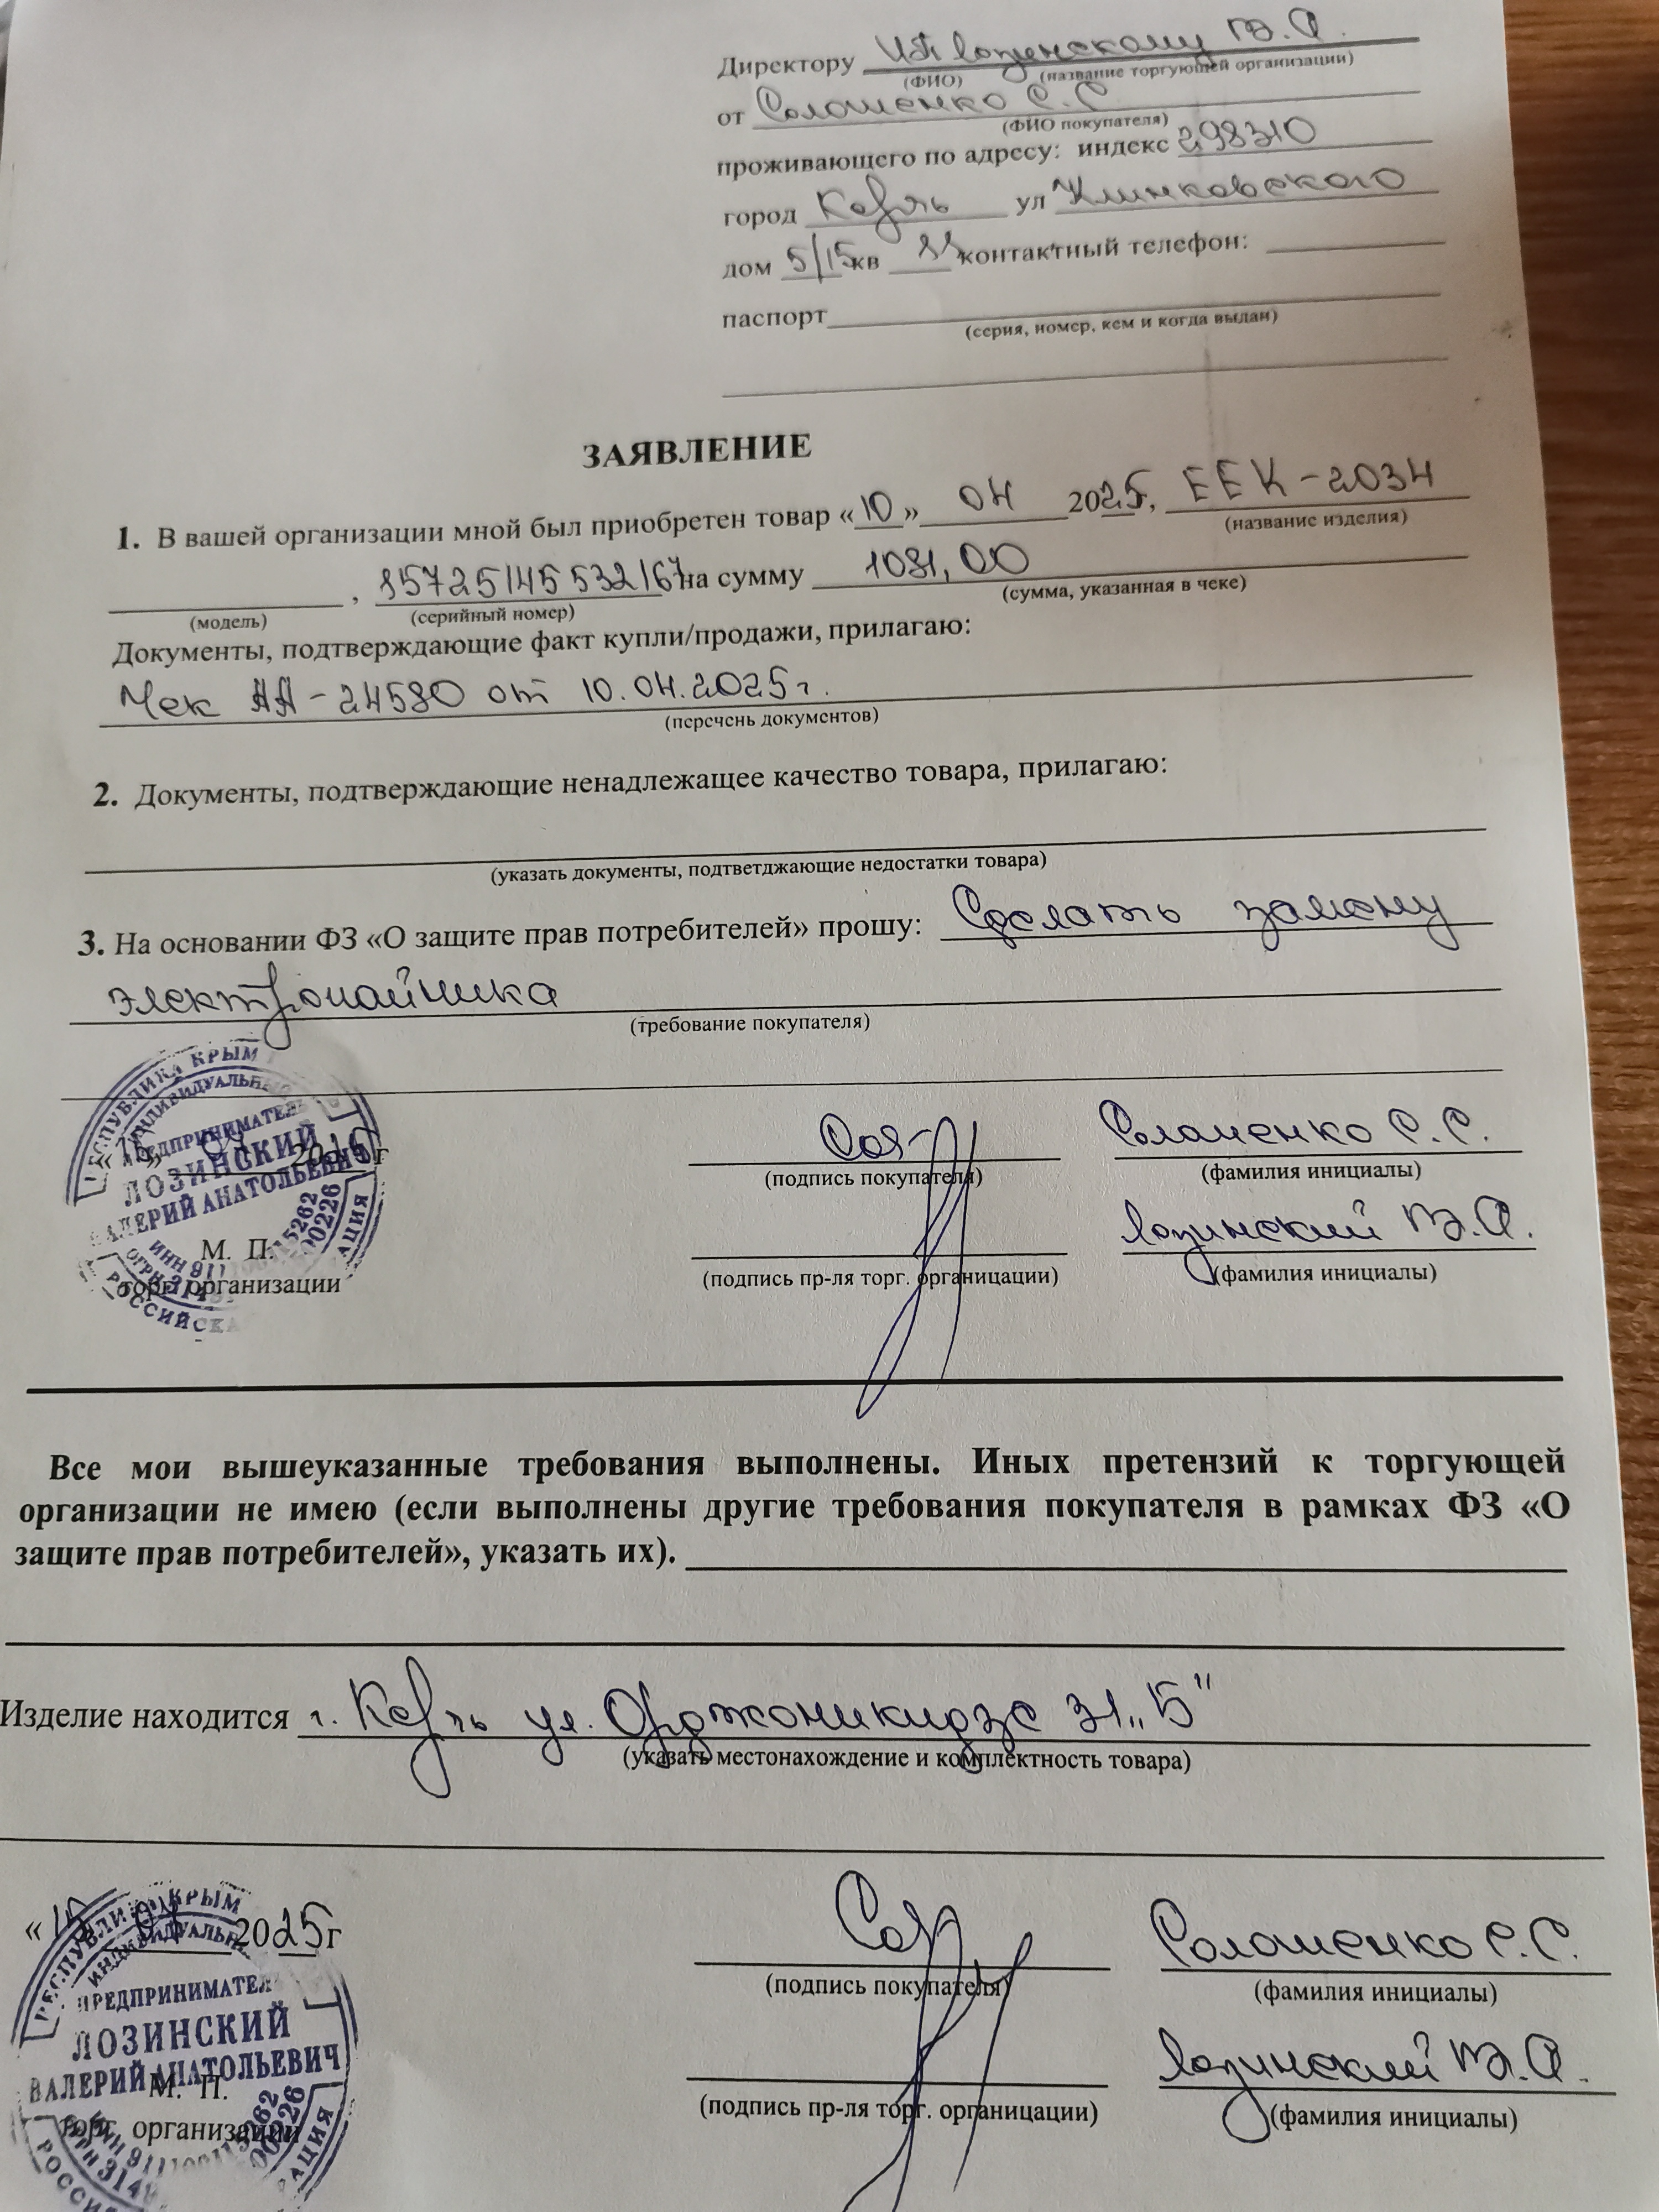 Директору ИП Лозинскому В.А.
(ФИО) (название торгующей организации)
от Солошенко С.С.
(ФИО покупателя)
проживающего по адресу: индекс 298310
город Керчь ул
дом 5/15 кв контактный телефон:
паспорт
(серия, номер, кем и когда выдан)
ЗАЯВЛЕНИЕ
1. В вашей организации мной был приобретен товар «10» 04 2025, EEK-2034
(название изделия)
, на сумму 1081,00
(модель) (серийный номер) (сумма, указанная в чеке)
Документы, подтверждающие факт купли/продажи, прилагаю:
Чек АА-24580 от 10.04.2025г.
(перечень документов)
2. Документы, подтверждающие ненадлежащее качество товара, прилагаю:
(указать документы, подтветджающие недостатки товара)
3. На основании ФЗ «О защите прав потребителей» прошу: Сделать замену
электрочайника
(требование покупателя)
РЕСПУБЛИКА КРЫМ
ИНДИВИДУАЛЬНЫЙ
ПРЕДПРИНИМАТЕЛЬ
ЛОЗИНСКИЙ
ВАЛЕРИЙ АНАТОЛЬЕВИЧ
2025г
Солошенко С.С.
(подпись покупателя) (фамилия инициалы)
М. П.
торг. организации
Лозинский В.А.
(подпись пр-ля торг. органицации) (фамилия инициалы)
Все мои вышеуказанные требования выполнены. Иных претензий к торгующей
организации не имею (если выполнены другие требования покупателя в рамках ФЗ «О
защите прав потребителей», указать их).
Изделие находится г. Керчь ул. Орджоникидзе 31 „Б"
(указать местонахождение и комплектность товара)
2025г
Солошенко С.С.
(подпись покупателя) (фамилия инициалы)
РЕСПУБЛИКА КРЫМ
ИНДИВИДУАЛЬНЫЙ
ПРЕДПРИНИМАТЕЛЬ
ЛОЗИНСКИЙ
ВАЛЕРИЙ АНАТОЛЬЕВИЧ
М. П.
торг. организации
Лозинский В.А.
(подпись пр-ля торг. органицации) (фамилия инициалы)